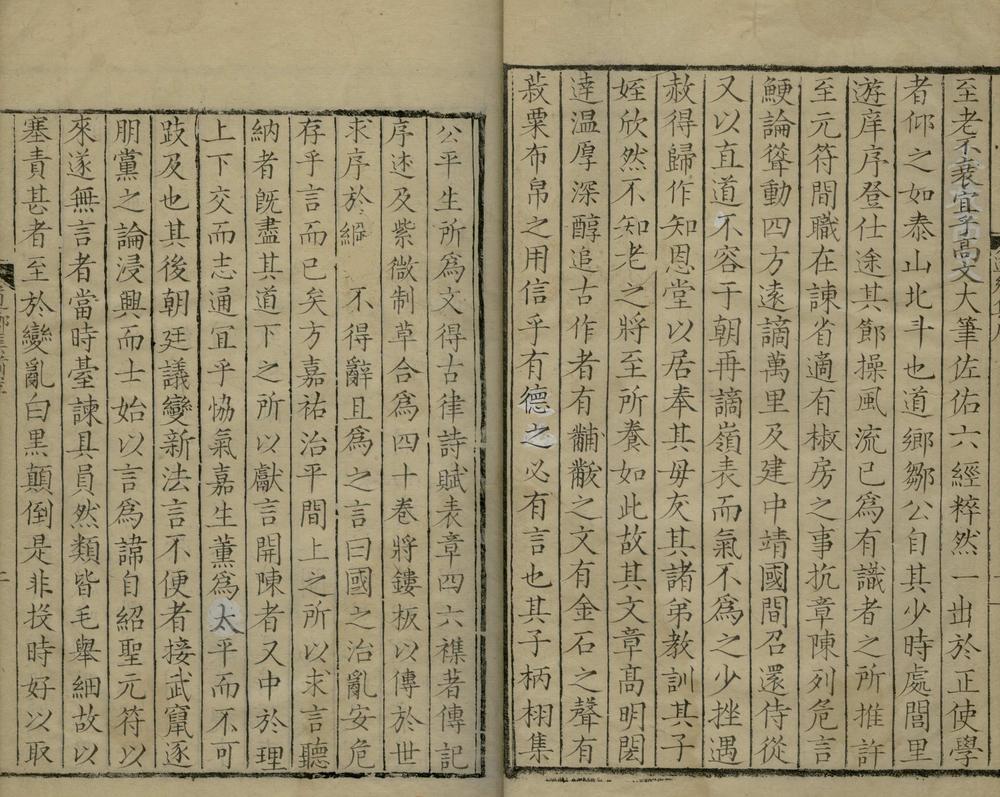 至老不衰宜乎高文大筆佐佑六經粹然一出於正使學
者仰之如泰山北斗也道鄉鄒公自其少時處閭里
遊庠序登仕途其節操風流已爲有識者之所推許
至元符間職在諫省適有椒房之事抗章陳列危言
鯁論聳動四方遠謫萬里及建中靖國間召還侍從
又以直道不容于朝再謫嶺表而氣不爲之少挫遇
赦得歸作知恩堂以居奉其母友其諸弟教訓其子
姪欣然不知老之將至所養如此故其文章高明閎
達温厚深醇追古作者有黼黻之文有金石之聲有
菽粟布帛之用信乎有德之必有言也其子柄栩集
公平生所爲文得古律詩賦表章四六襍著傳記
序述及紫微制草合爲四十卷將鏤板以傳於世
求序於綱 不得辭且爲之言曰國之治亂安危
存乎言而已矣方嘉祐治平間上之所以求言聽
納者既盡其道下之所以獻言開陳者又中於理
上下交而志通宜乎恊氣嘉生薰爲太平而不可
跂及也其後朝廷議變新法言不便者接武竄逐
朋黨之論浸興而士始以言爲諱自紹聖元符以
來遂無言者當時臺諫具員然類皆毛舉細故以
塞責甚者至於變亂白黒顛倒是非投時好以取